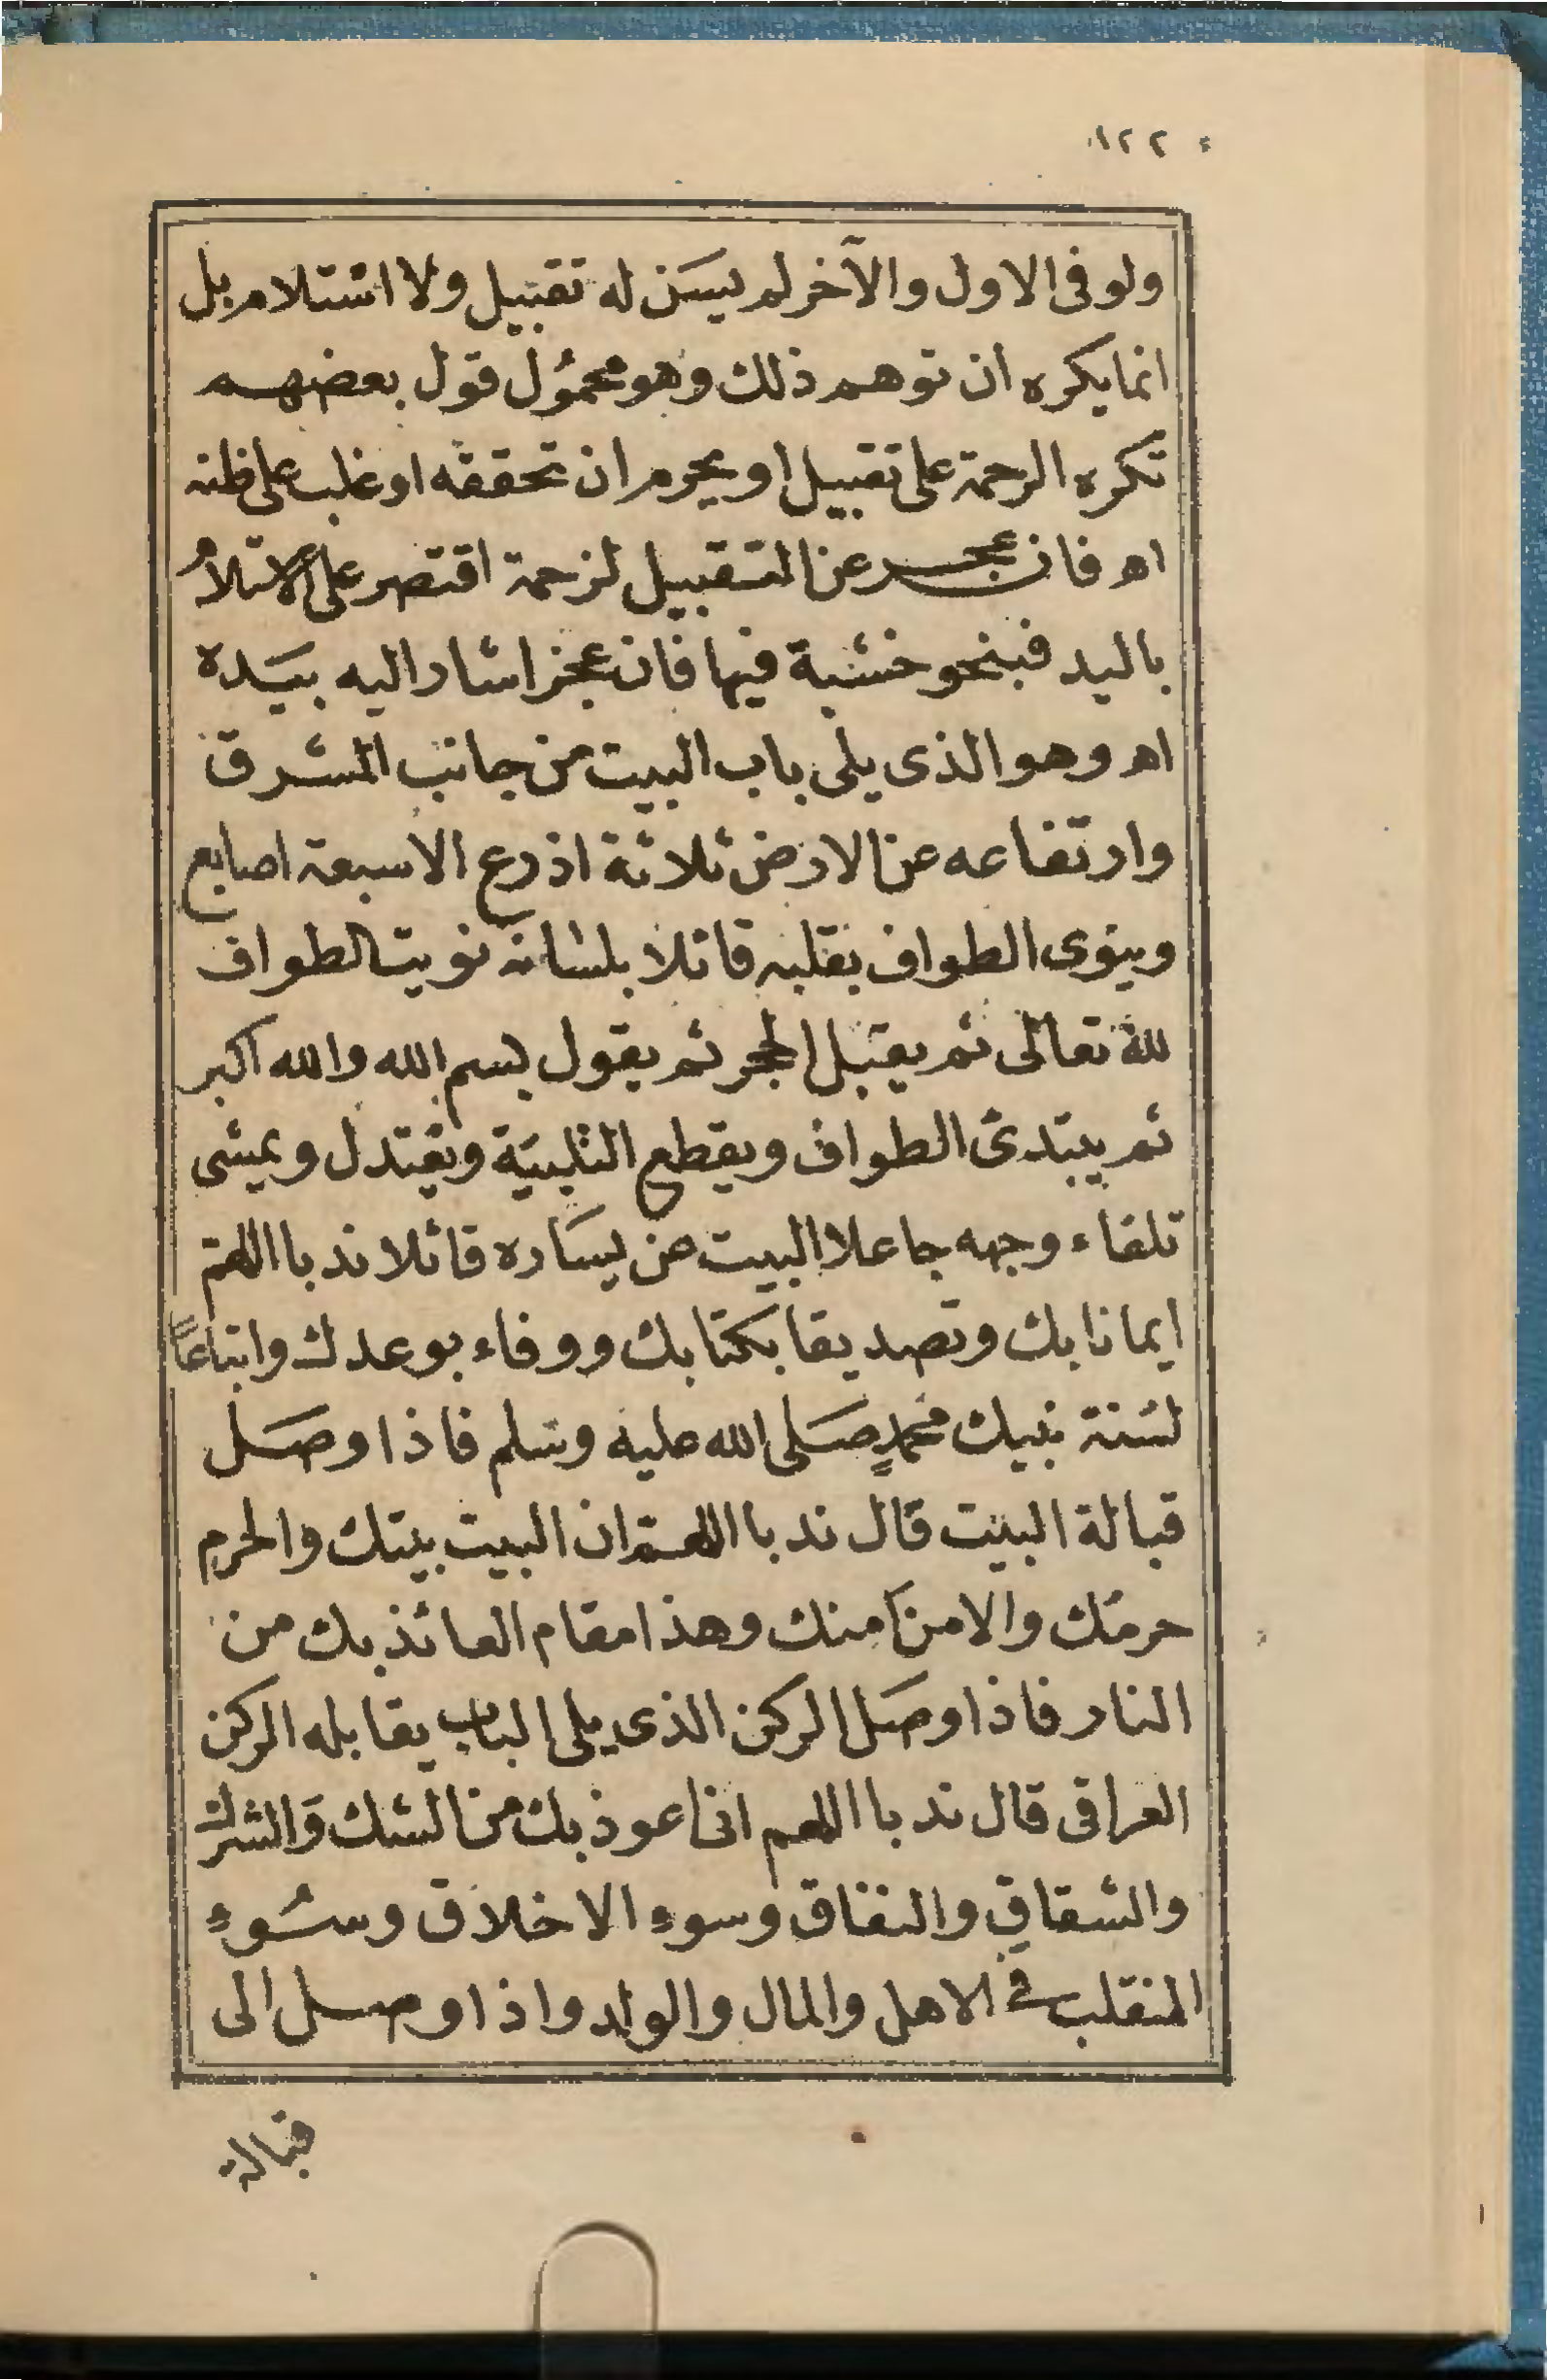 ١٢٢
ولو فى الاول والآخر لم يسن له تقبيل ولا استلام بل
انما يكره ان توهم ذلك وهو محمول قول بعضهم
تكره الزحمة على تقبيل او يحرم ان تحققه او غلب على ظنه
اه فان عجز عن التقبيل لزحمة اقتصر على الاستلام
باليد فبنحو خشبة فيها فان عجز اشار اليه بيده
اه وهو الذى يلى باب البيت من جانب المشرق
وارتفاعه عن الارض ثلاثة اذرع الاسبعة اصابع
وينوى الطواف بقلبه قائلا بلسانه نويت الطواف
لله تعالى ثم يقبل الحجر ثم يقول بسم الله والله اكبر
ثم يبتدئ الطواف ويقطع التلبية ويعتدل ويمشى
تلقاء وجهه جاعلا البيت عن يساره قائلا ندبا اللهم
ايمانا بك وتصديقا بكتابك ووفاء بوعدك واتباعاً
لسنة نبيك محمدٍ صلى الله عليه وسلم فاذا وصل
قبالة البيت قال ندبا اللهم ان البيت بيتك والحرم
حرمك والامن امنك وهذا مقام العائذ بك من
النار فاذا وصل الركن الذى يلى الباب يقابله الركن
العراقى قال ندبا اللهم انى اعوذ بك من الشك والشرك
والشقاق والنفاق وسوءِ الاخلاق وسُوءِ
المنقلب فى الاهل والمال والولد واذا وصل الى
قبالة